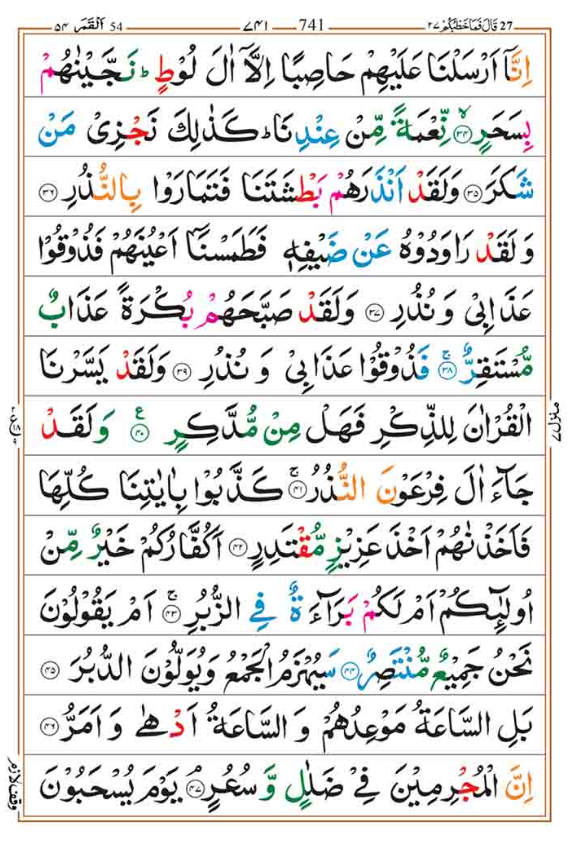 27 قَالَ فَمَا خَطْبُكُمْ ٢٧ 741 ٧٤١ 54 اَلْقَمَر ٥٤
اِنَّاۤ اَرْسَلْنَا عَلَيْهِمْ حَاصِبًا اِلَّاۤ اٰلَ لُوْطٍ ؕ نَجَّيْنٰهُمْ
بِسَحَرٍ ۙ‏﴿۳۴﴾ نِّعْمَةً مِّنْ عِنْدِنَا ؕ كَذٰلِكَ نَجْزِىْ مَنْ
شَكَرَ ﴿۳۵﴾ وَلَقَدْ اَنْذَرَهُمْ بَطْشَتَنَا فَتَمَارَوْا بِالنُّذُرِ ﴿۳۶﴾
وَ لَقَدْ رَاوَدُوْهُ عَنْ ضَيْفِهٖ فَطَمَسْنَاۤ اَعْيُنَهُمْ فَذُوْقُوْا
عَذَابِىْ وَ نُذُرِ ﴿۳۷﴾ وَلَقَدْ صَبَّحَهُمْ بُكْرَةً عَذَابٌ
مُّسْتَقِرٌّ ۚ‏﴿۳۸﴾ فَذُوْقُوْا عَذَابِىْ وَ نُذُرِ ﴿۳۹﴾ وَلَقَدْ يَسَّرْنَا
الْقُرْاٰنَ لِلذِّكْرِ فَهَلْ مِنْ مُّدَّكِرٍ ﴿۴۰﴾ ع وَلَقَدْ
جَآءَ اٰلَ فِرْعَوْنَ النُّذُرُ ۚ‏﴿۴۱﴾ كَذَّبُوْا بِاٰيٰتِنَا كُلِّهَا
فَاَخَذْنٰهُمْ اَخْذَ عَزِيْزٍ مُّقْتَدِرٍ ﴿۴۲﴾ اَكُفَّارُكُمْ خَيْرٌ مِّنْ
اُولٰٓئِكُمْ اَمْ لَكُمْ بَرَآءَةٌ فِى الزُّبُرِ ۚ‏﴿۴۳﴾ اَمْ يَقُوْلُوْنَ
نَحْنُ جَمِيْعٌ مُّنْتَصِرٌ ﴿۴۴﴾ سَيُهْزَمُ الْجَمْعُ وَيُوَلُّوْنَ الدُّبُرَ ﴿۴۵﴾
بَلِ السَّاعَةُ مَوْعِدُهُمْ وَ السَّاعَةُ اَدْهٰى وَ اَمَرُّ ﴿۴۶﴾
اِنَّ الْمُجْرِمِيْنَ فِىْ ضَلٰلٍ وَّ سُعُرٍ ۘ‏﴿۴۷﴾ يَوْمَ يُسْحَبُوْنَ
منزل ٧
وقف لازم